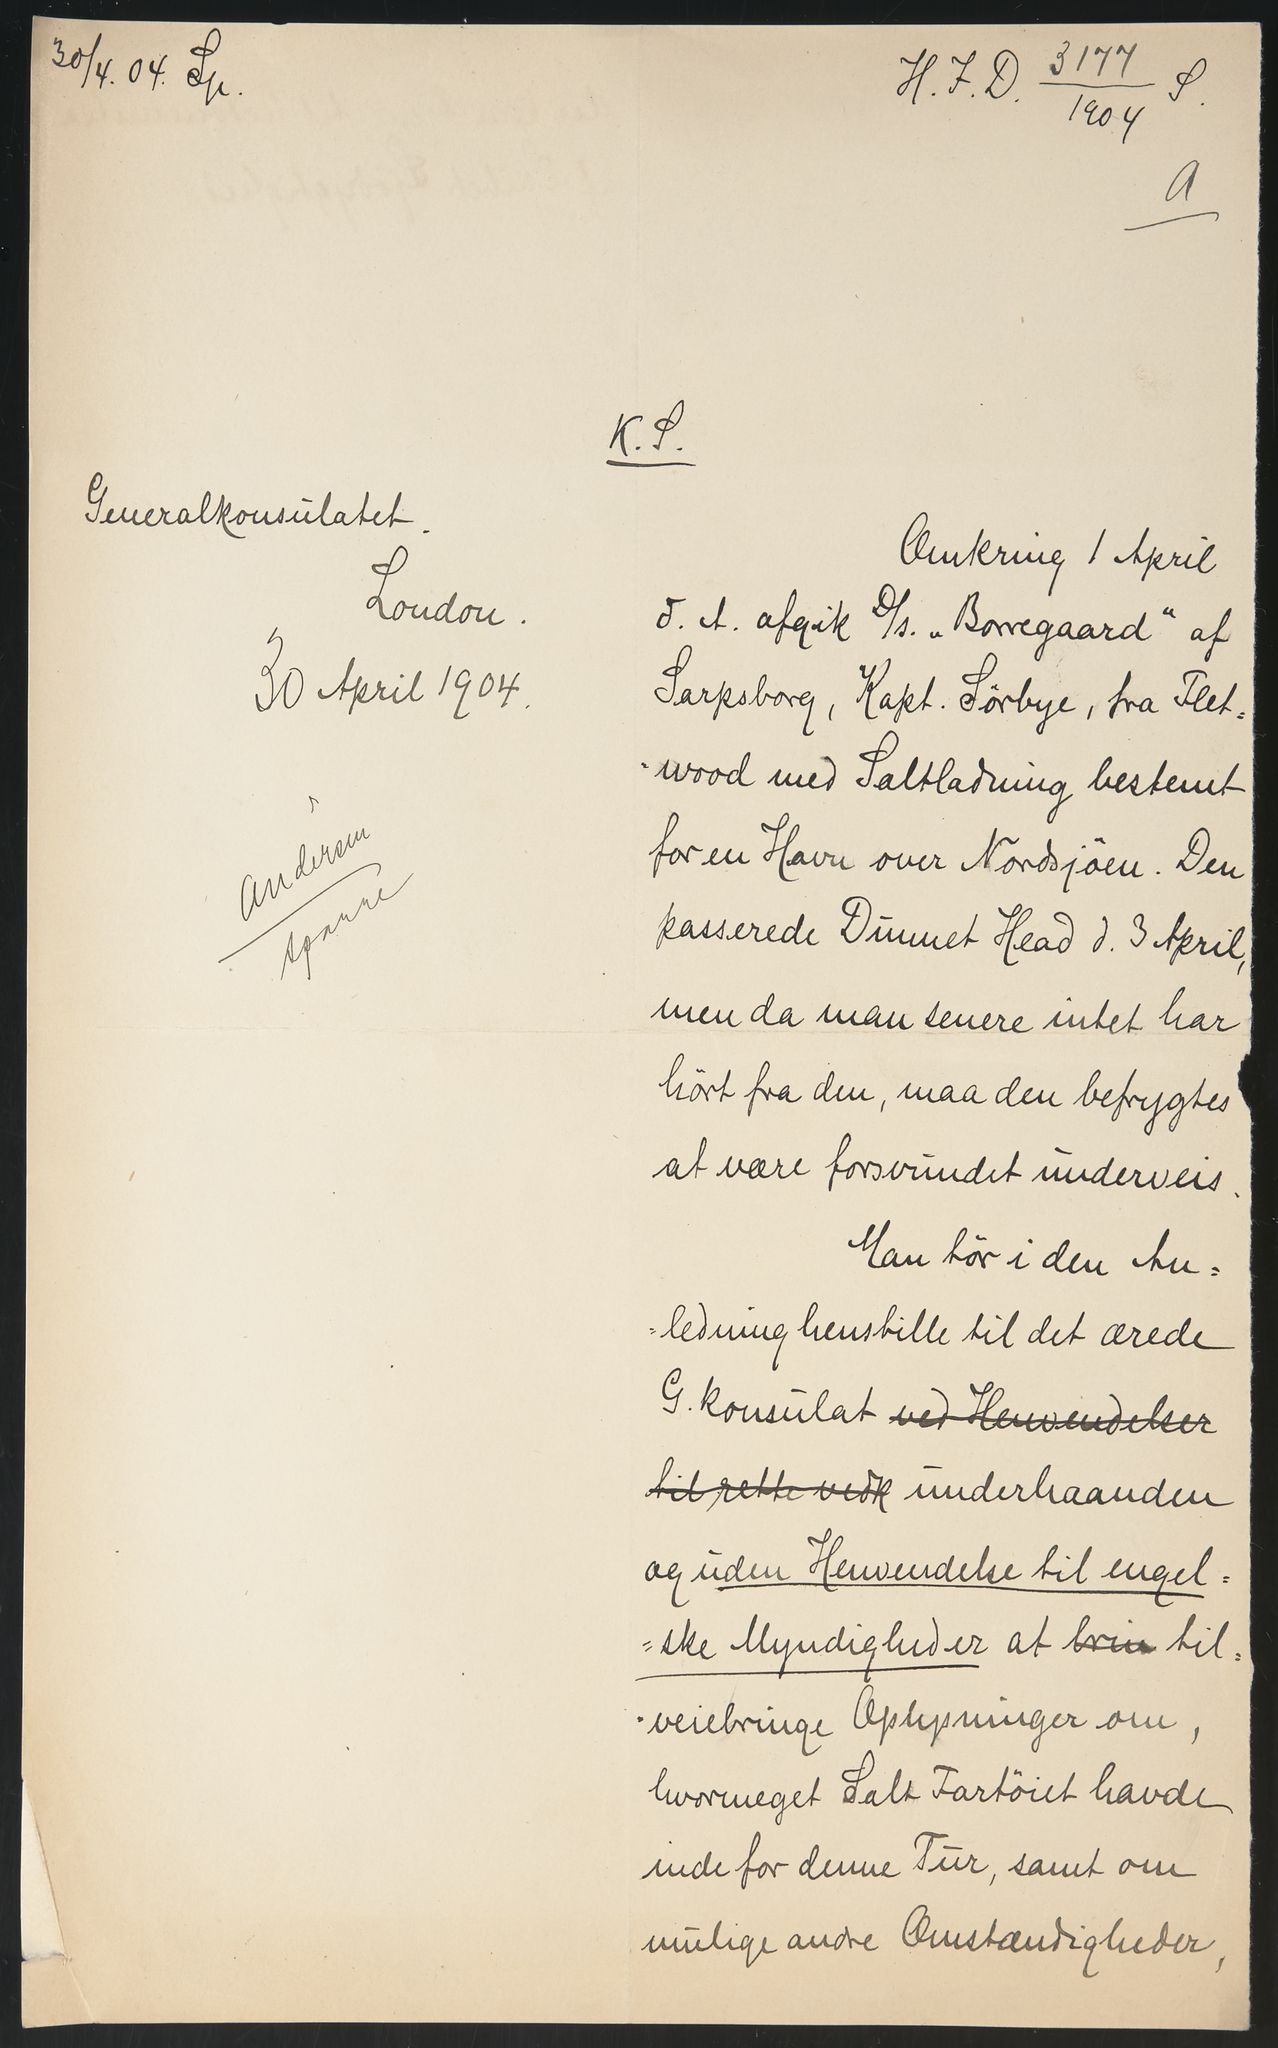 30/4. 04. Sp.
H. F. D. 3177/1904 S.
A
K. S.
Generalkonsulatet.
London.
30 April 1904.
Andersen
Omkring 1 April
d. A. afgik D/s. „Borregaard" af
Sarpsborg, Kapt. Sörbye, fra Flet=
=wood med Saltladning bestemt
for en Havn over Nordsjöen. Den
passerede Dunnet Head d. 3 April,
men da man senere intet har
hört fra den, maa den befrygtes
at være forsvundet underveis.
Man tör i den An=
=ledning henstille til det ærede
G. konsulat ved Henvendelser
til rette vedk underhaanden
og uden Henvendelse til engel=
=ske Myndigheder at brin til=
=veiebringe Oplysninger om,
hvormeget Salt Fartöiet havde
inde for denne Tur, samt om
mulige andre Omstændigheder,